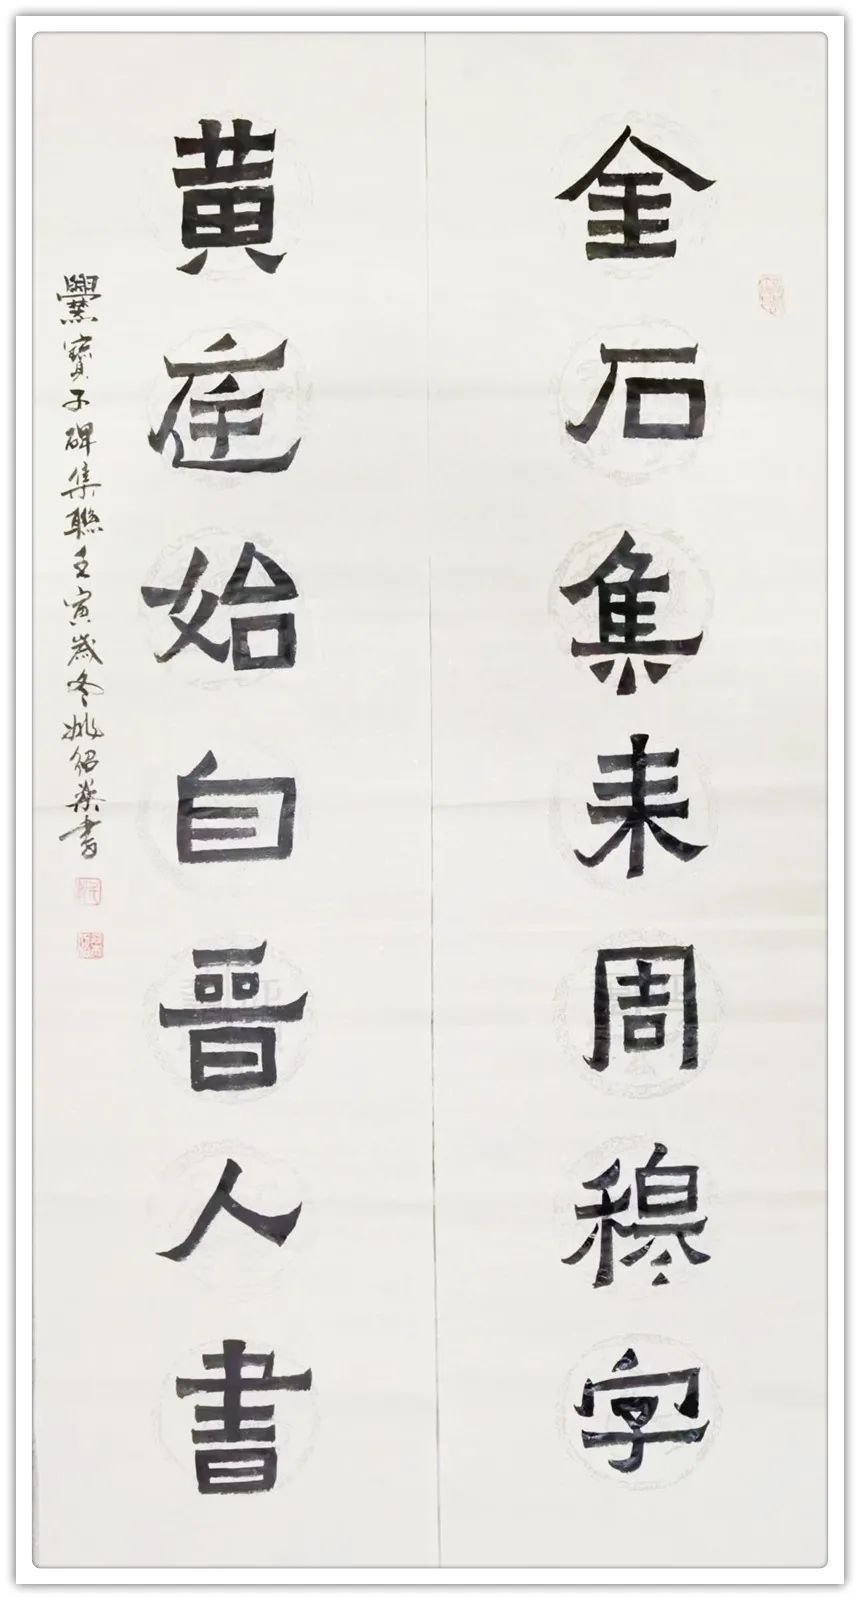 金石集来周穆字
黄庭始自晋人書
爨寶子碑集聯壬寅歲冬姚紹燊書